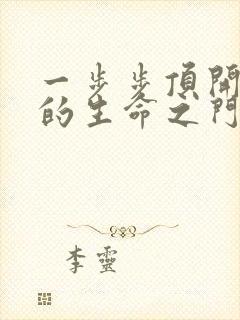 一步步頂開
的生命之門
李靈